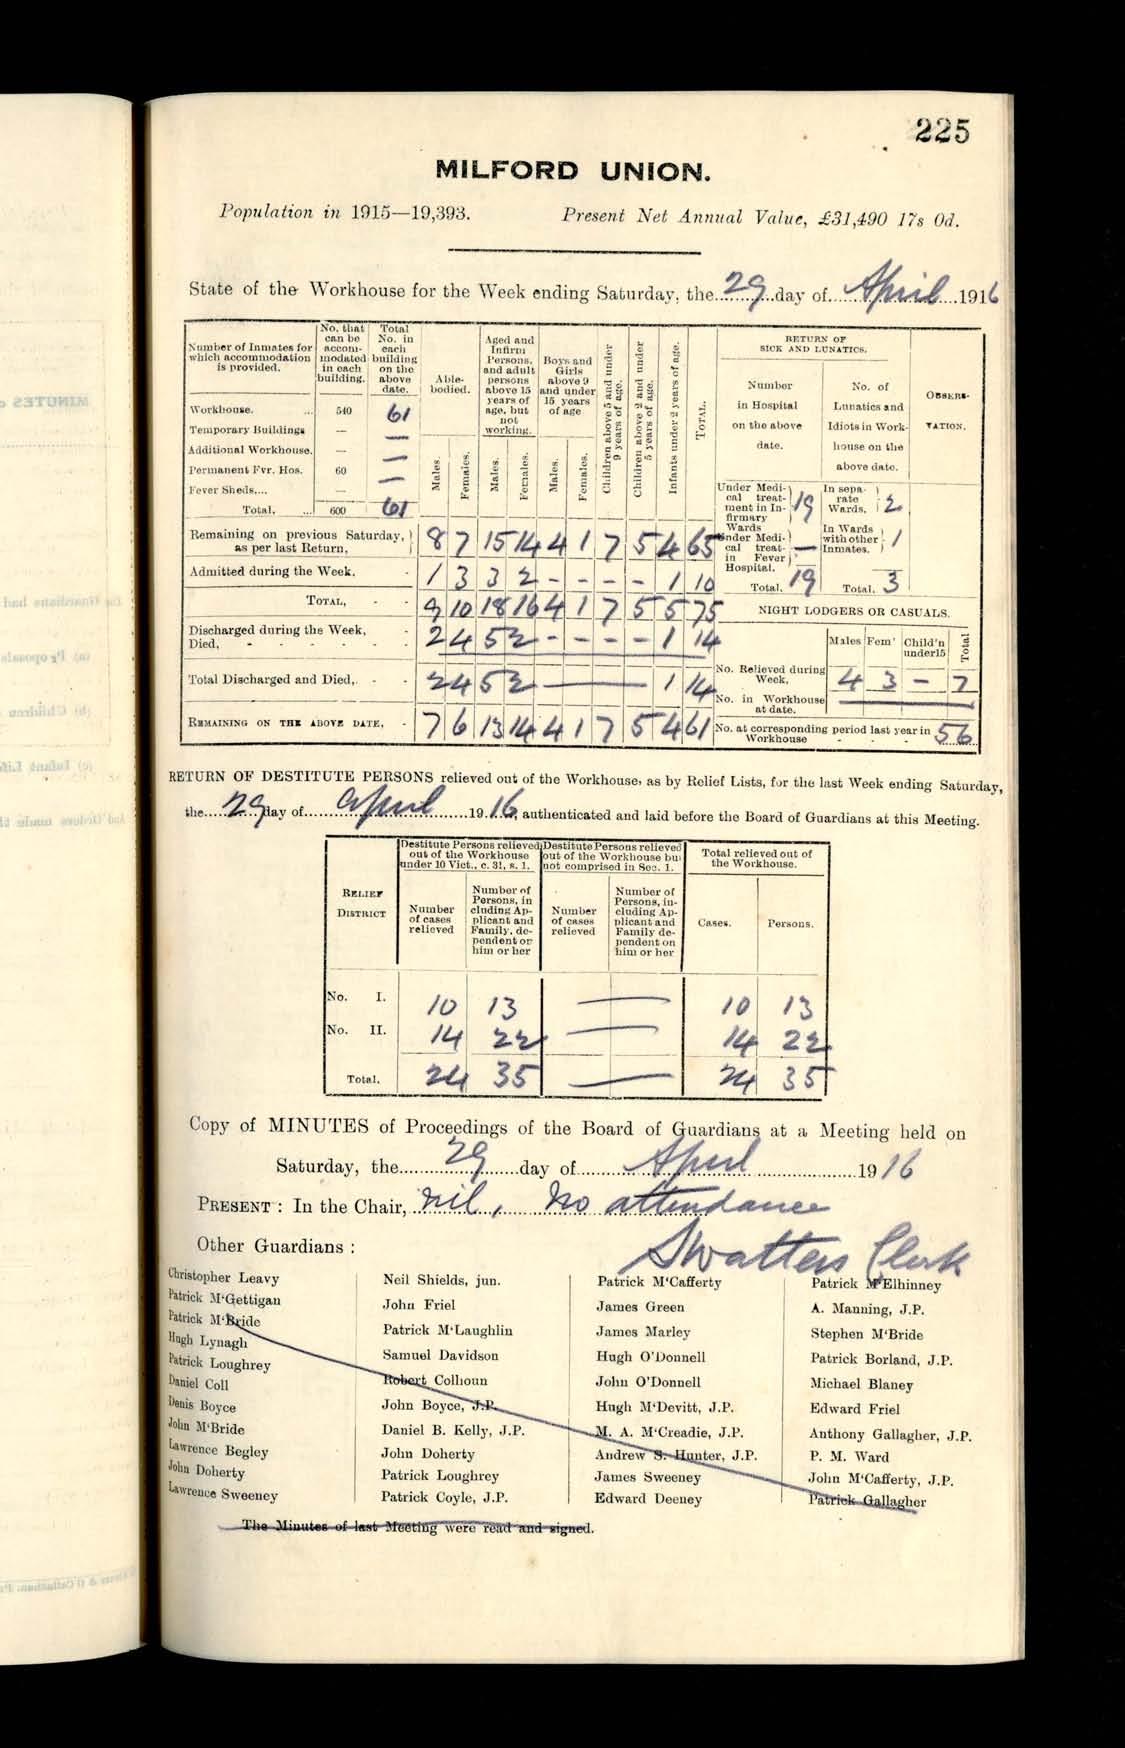 225
MILFORD UNION.
Population in 1915—19,393. Present Net Annual Value, £31,490 17s 0d.
State of the Workhouse for the Week ending Saturday, the 29 day of April 1916
Number of Inmates for which accommodation is provided. No. that can be accommodated in each building. Total No. in each building on the above date.
Workhouse. ... 540 61
Temporary Buildings — —
Additional Workhouse. — —
Permanent Fvr. Hos. 60 —
Fever Sheds.... —
Total, ... 600 61
Able-bodied. Males. Females.
Aged and Infirm Persons, and adult persons above 15 years of age, but not working. Males. Females.
Boys and Girls above 9 and under 15 years of age Males. Females.
Children above 5 and under 9 years of age.
Children above 2 and under 5 years of age.
Infants under 2 years of age.
TOTAL.
Remaining on previous Saturday, as per last Return, 8 7 15 14 4 1 7 5 4 65
Admitted during the Week. - 1 3 3 2 - - - - 1 10
TOTAL, - - 9 10 18 16 4 1 7 5 5 75
Discharged during the Week, - 2 4 5 2 - - - - 1 14
Died, - - - - - -
Total Discharged and Died, - - 2 4 5 2 — 1 14
REMAINING ON THE ABOVE DATE, - 7 6 13 14 4 1 7 5 4 61
RETURN OF SICK AND LUNATICS.
Number in Hospital on the above date.
No. of Lunatics and Idiots in Workhouse on the above date.
OBSERVATION.
Under Medical treatment in Infirmary Wards 19
In separate Wards. 2
Under Medical treat- in Fever Hospital. —
In Wards with other Inmates. 1
Total. 19 Total. 3
NIGHT LODGERS OR CASUALS.
Males Fem' Child'n under15 Total
No. Relieved during Week, 4 3 - 7
No. in Workhouse at date. —
No. at corresponding period last year in Workhouse - - - 56
RETURN OF DESTITUTE PERSONS relieved out of the Workhouse, as by Relief Lists, for the last Week ending Saturday,
the 29 day of April 1916, authenticated and laid before the Board of Guardians at this Meeting.
RELIEF DISTRICT
Destitute Persons relieved out of the Workhouse under 10 Vict., c. 31, s. 1.
Destitute Persons relieved out of the Workhouse but not comprised in Sec. 1.
Total relieved out of the Workhouse.
Number of cases relieved
Number of Persons, including Applicant and Family, dependent on him or her
Number of cases relieved
Number of Persons, including Applicant and Family dependent on him or her
Cases. Persons.
No. I. 10 13 — 10 13
No. II. 14 22 — 14 22
Total. 24 35 — 24 35
Copy of MINUTES of Proceedings of the Board of Guardians at a Meeting held on
Saturday, the 29 day of April 1916
PRESENT: In the Chair, Nil, No attendance
Other Guardians: SWatters Clerk
Christopher Leavy Neil Shields, jun. Patrick M'Cafferty Patrick M'Elhinney
Patrick M'Gettigan John Friel James Green A. Manning, J.P.
Patrick M'Bride Patrick M'Laughlin James Marley Stephen M'Bride
Hugh Lynagh Samuel Davidson Hugh O'Donnell Patrick Borland, J.P.
Patrick Loughrey Robert Colhoun John O'Donnell Michael Blaney
Daniel Coll John Boyce, J.P. Hugh M'Devitt, J.P. Edward Friel
Denis Boyce Daniel B. Kelly, J.P. M. A. M'Creadie, J.P. Anthony Gallagher, J.P.
John M'Bride John Doherty Andrew S. Hunter, J.P. P. M. Ward
Lawrence Begley Patrick Loughrey James Sweeney John M'Cafferty, J.P.
John Doherty Patrick Coyle, J.P. Edward Deeney Patrick Gallagher
Lawrence Sweeney
The Minutes of last Meeting were read and signed.